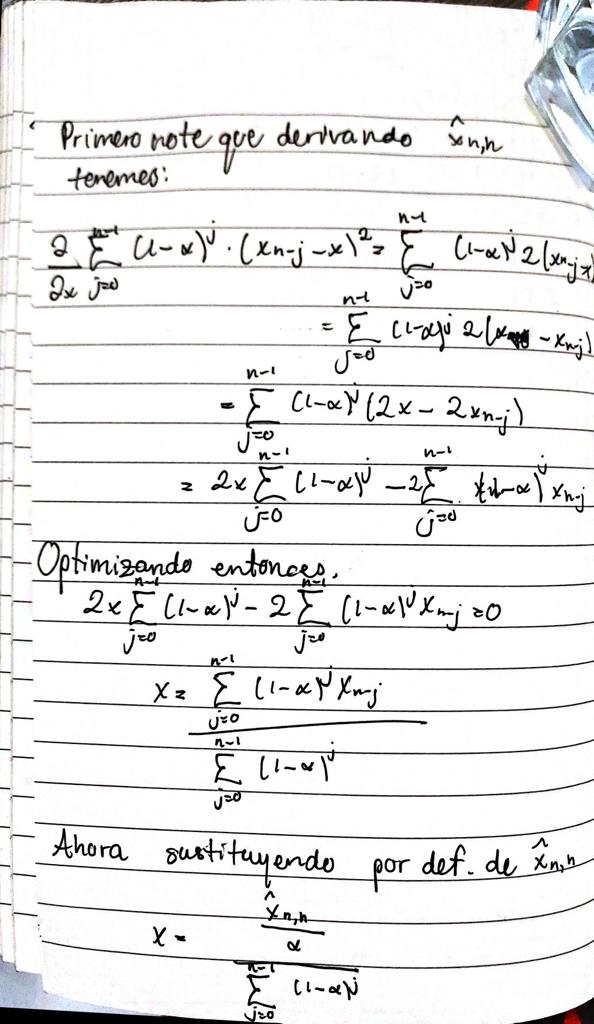 Primero note que derivando x̂n,n
tenemos:
∂/∂x ∑_{j=0}^{n-1} (1-α)^j · (x_{n-j} - x)^2 = ∑_{j=0}^{n-1} (1-α)^j 2(x_{n-j} -
= ∑_{j=0}^{n-1} (1-α)^j 2(x - x_{n-j})
= ∑_{j=0}^{n-1} (1-α)^j (2x - 2x_{n-j})
= 2x ∑_{j=0}^{n-1} (1-α)^j - 2 ∑_{j=0}^{n-1} (1-α)^j x_{n-j}
Optimizando entonces,
2x ∑_{j=0}^{n-1} (1-α)^j - 2 ∑_{j=0}^{n-1} (1-α)^j x_{n-j} = 0
x = ∑_{j=0}^{n-1} (1-α)^j x_{n-j} / ∑_{j=0}^{n-1} (1-α)^j
Ahora sustituyendo por def. de x̂n,n
x = (x̂n,n / α) / ∑_{j=0}^{n-1} (1-α)^j